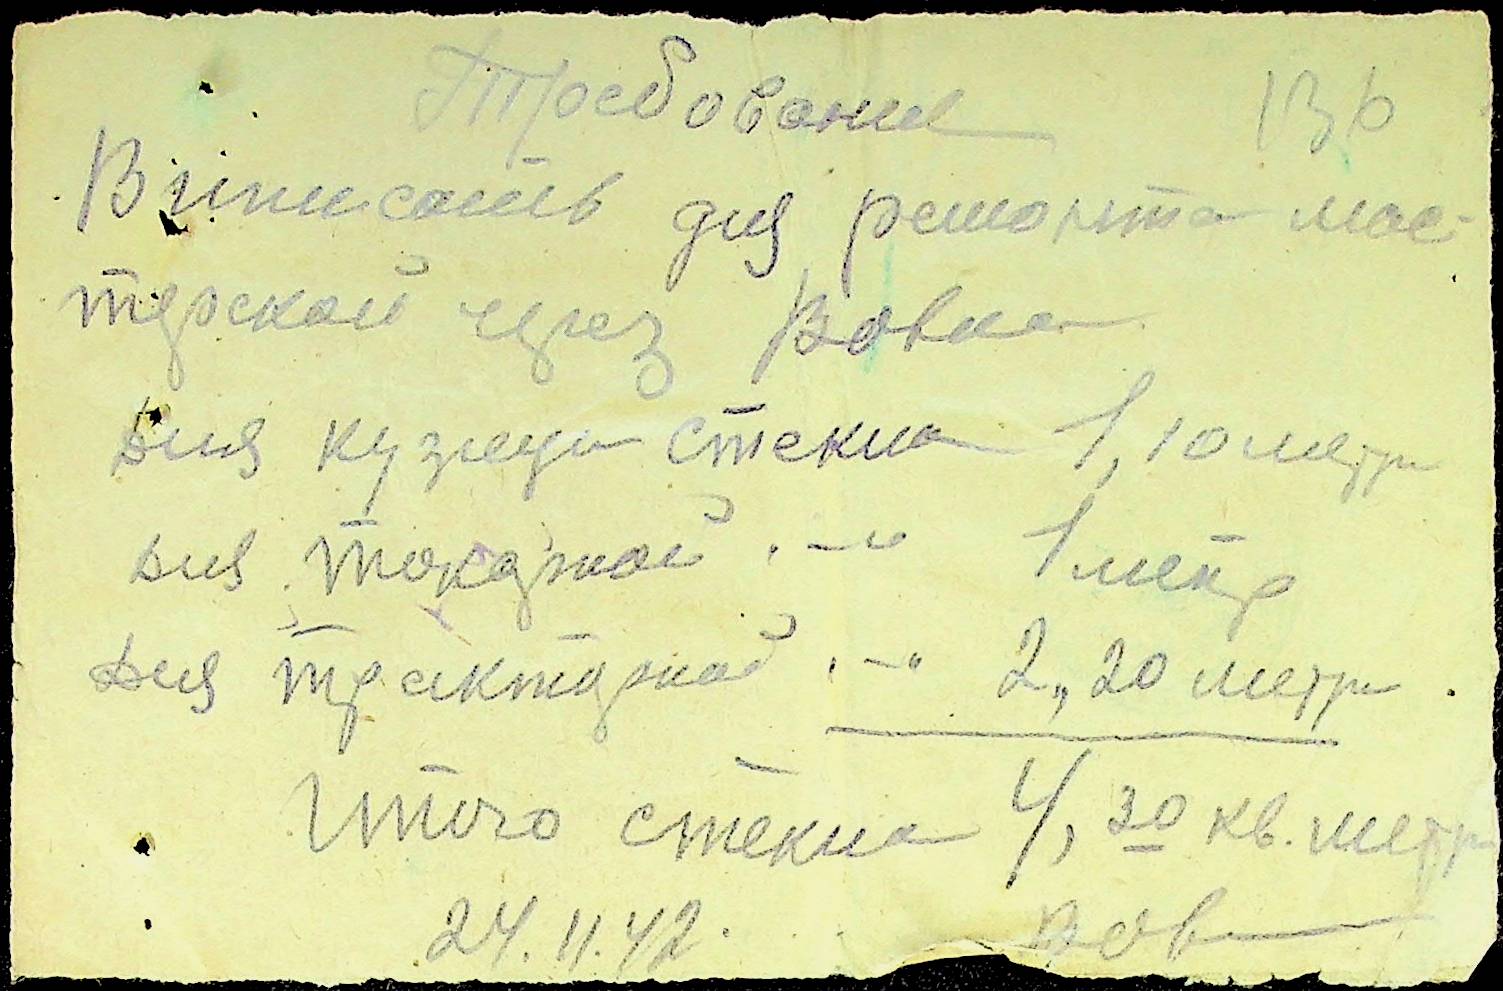 Требование 136
Виписать для ремонта мас-
терской через Вовка
для кузнеци стекла 1,10 метра
для токарной -"- 1 метр
для тракторной -"- 2,20 метра.
Итого стекла 4,30 кв. метра
24.11.42. Вов